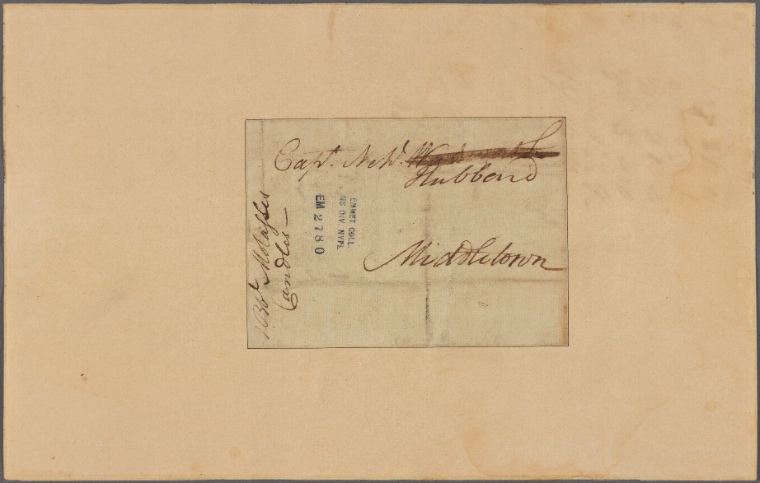 Capt. Neh.
Hubbard
Middletown
Molasses
Candles
EMMET COLL
MS DIV NYPL
EM 2780